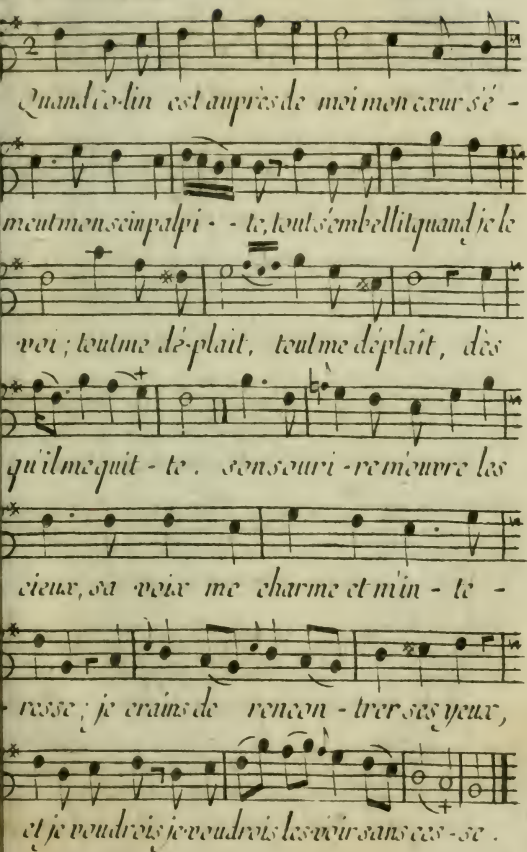 2
Quand Co-lin est auprès de moi mon cœur s'é -
meut mon sein palpi - - te, tout s'embellit quand je le
voi ; tout me dé-plait, tout me déplaît, dès
qu'il me quit - te . son souri - re m'ouvre les
cieux, sa voix me charme et m'in - té -
- resse ; je crains de rencon - trer ses yeux,
et je voudrois je voudrois les voir sans ces - se .